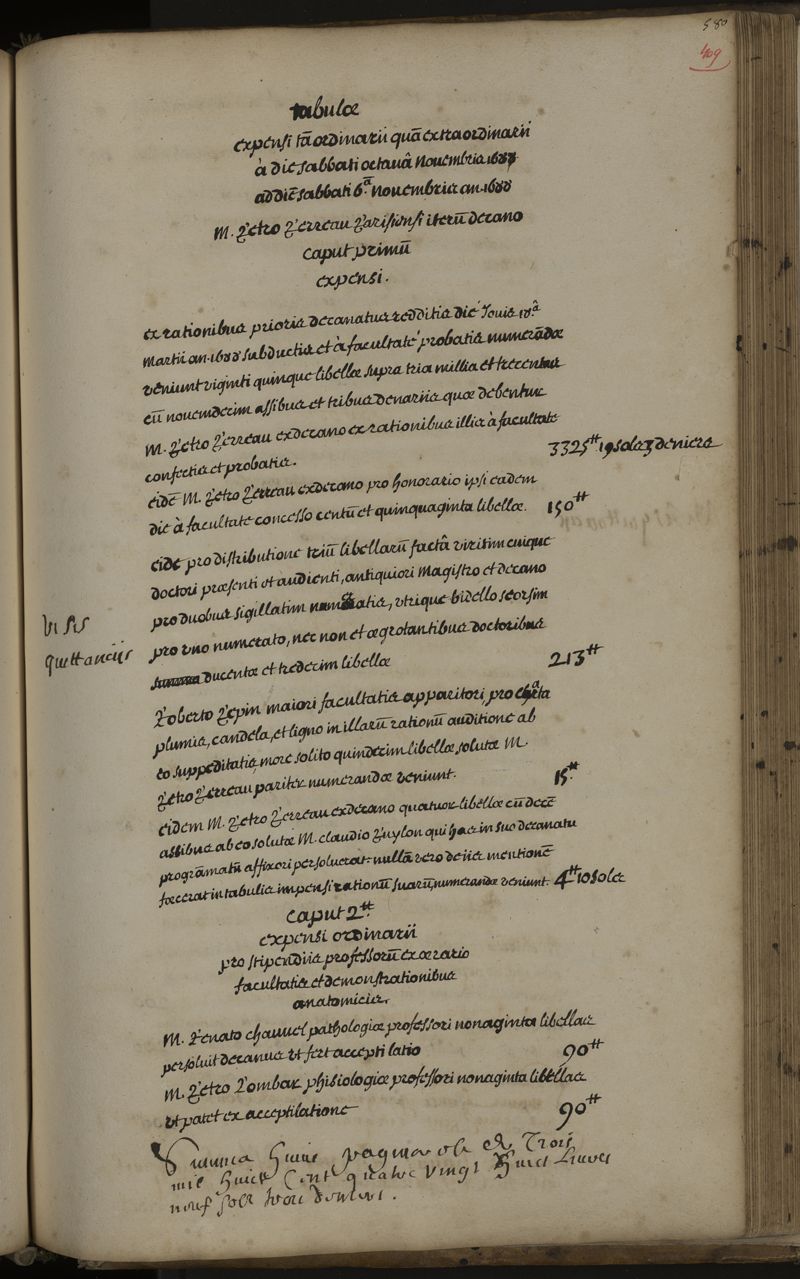 580
409
tabulæ
expensi tā ordinarii quā extraordinarii
à die sabbati octavâ Novembris 1687
ad diē sabbati 6.ª Novembris an. 1688
M. Petro Perreau Parisiensi iterū decano
caput primū
expensi.
ex rationibus prioris decanatus redditis die Jovis 18ª
Martii an. 1688 subductis et à facultate probatis numerādæ
veniunt viginti quinque libellæ supra tria millia et trecentas
cū novemdecim assibus et tribus denariis quæ debentur
M. Petro Perreau exdecano ex rationibus illis à facultate
confectis et probatis.
3325tt 19 sols 3 deniers
eidē M. Petro Perreau exdecano pro honorario ipsi eadem
die à facultate concesso centū et quinquaginta libellæ.
150tt
eidē pro distributione triū libellarū factâ viritim cuique
doctori præsenti et audienti, antiquiori Magistro et decano
pro duobus sigillatim numeratis, utrique bidello seorsim
pro uno numerato, nec non et ægrotantibus doctoribus
ducentæ et tredecim libellæ
213tt
visis
quittanciis
Roberto Pepin maiori facultatis apparitori, pro chartâ
plumis, candela, et ligno in illarū rationū auditione ab
eo suppeditatis, more solito quindecim libellæ solutæ M.
Petro Perreau pariter numerandæ veniunt.
15tt
eidem M. Petro Perreau exdecano quatuor libellæ cū decē
assibus ab eo solutæ M. claudio Puylon qui has in suo decanatu
programatū affixori persolverat. nullā vero de iis mentionē
fecerat in tabulis impensi rationū suarū, numerandæ veniunt.
4tt 10 sols
caput 2tt
expensi ordinarii
pro stipendiis professorū ex ærario
facultatis et demonstrationibus
anatomicis.
M. Renato chauvel pathologiæ professori nonaginta libellas
persolvit decanus ut fert acceptilatio
90tt
M. Petro Lombar phisiologiæ professori nonaginta libellas
ut patet ex acceptilatione
90tt
Summa huius paginæ est de Trois
mil huict Cent quatre vingt huict Livres
neuf sols trois deniers.